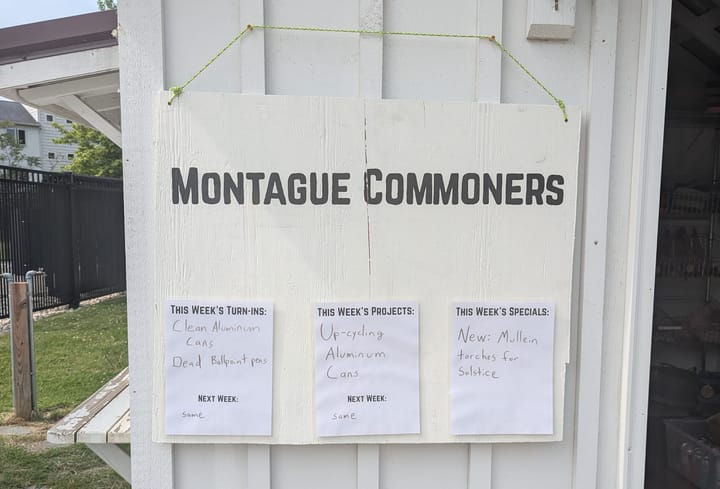 MONTAGUE COMMONERS
THIS WEEK'S TURN-INS:
Clean Aluminum
Cans
Dead Ballpoint pens
NEXT WEEK:
same
THIS WEEK'S PROJECTS:
Up-cycling
Aluminum
Cans
NEXT WEEK:
same
THIS WEEK'S SPECIALS:
New: Mullein
torches for
Solstice